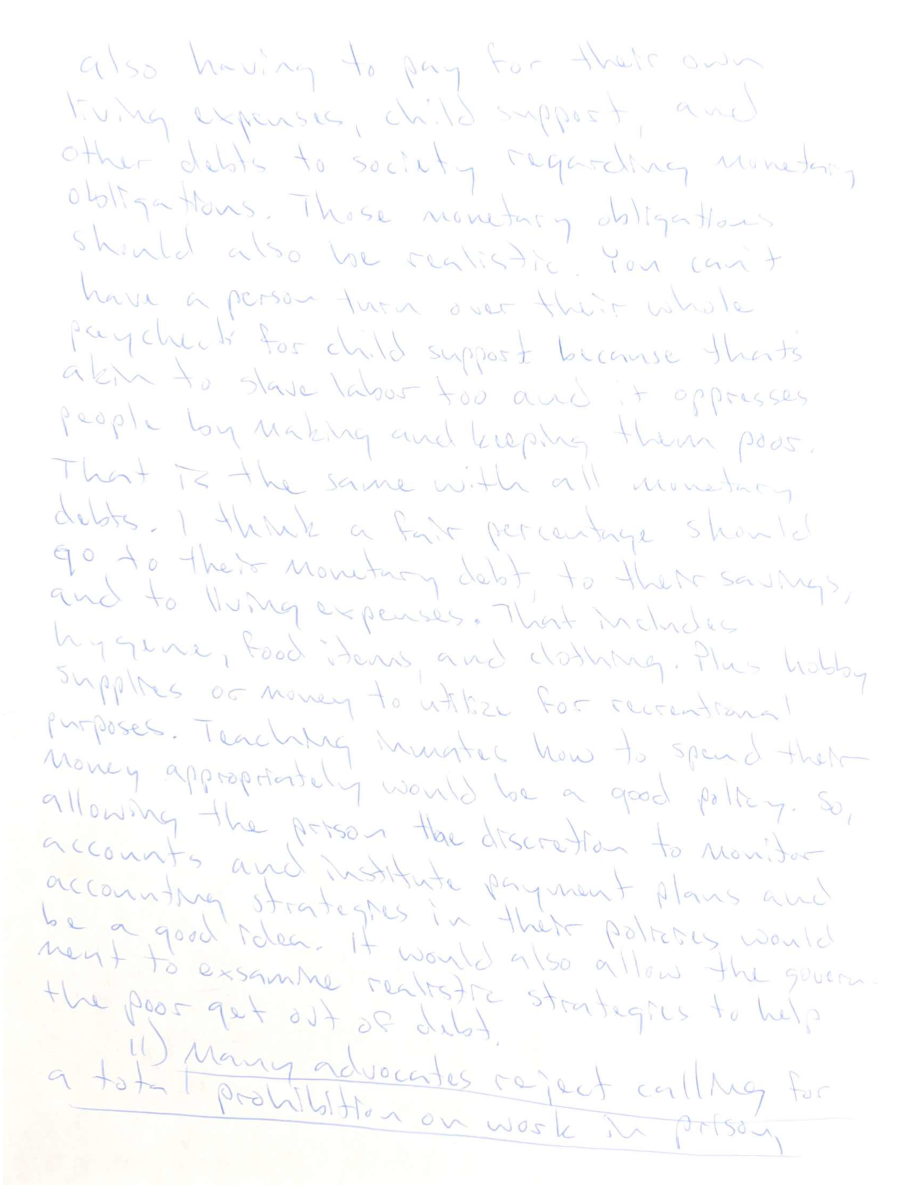 also having to pay for their own
living expenses, child support, and
other debts to society regarding monetary
obligations. Those monetary obligations
should also be realistic. You can't
have a person turn over their whole
paycheck for child support because that's
akin to slave labor too and it oppresses
people by making and keeping them poor.
That is the same with all monetary
debts. I think a fair percentage should
go to their monetary debt, to their savings,
and to living expenses. That includes
hygene, food items, and clothing. Plus hobby
supplies or money to utilize for recreational
purposes. Teaching inmates how to spend their
money appropriately would be a good policy. So,
allowing the prison the discretion to monitor
accounts and institute payment plans and
accounting strategies in their policies would
be a good idea. It would also allow the govern-
ment to exsamine realistic strategies to help
the poor get out of debt.
11) Many advocates reject calling for
a total prohibition on work in prison,